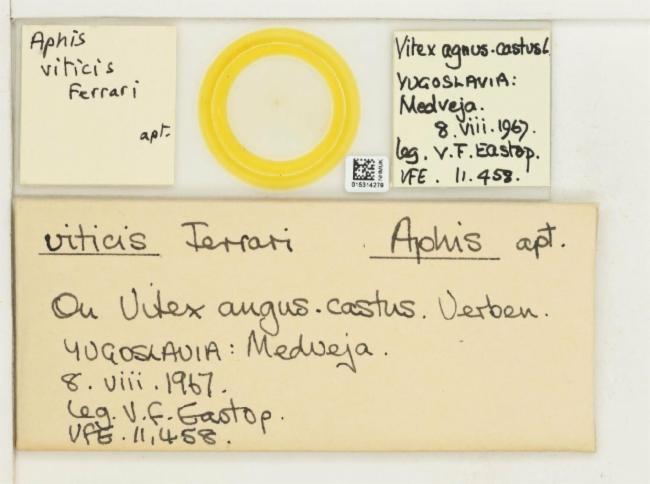 Aphis
viticis
Ferrari
apt.
Vitex agnus-castus L
YUGOSLAVIA:
Medveja.
8. viii. 1967.
leg. V.F. Eastop.
VFE. 11.458.
NHMUK
015314279
viticis Ferrari Aphis apt.
On Vitex angus-castus. Verben.
YUGOSLAVIA: Medveja.
8. viii. 1967.
leg. V.F. Eastop.
VFE. 11,458.